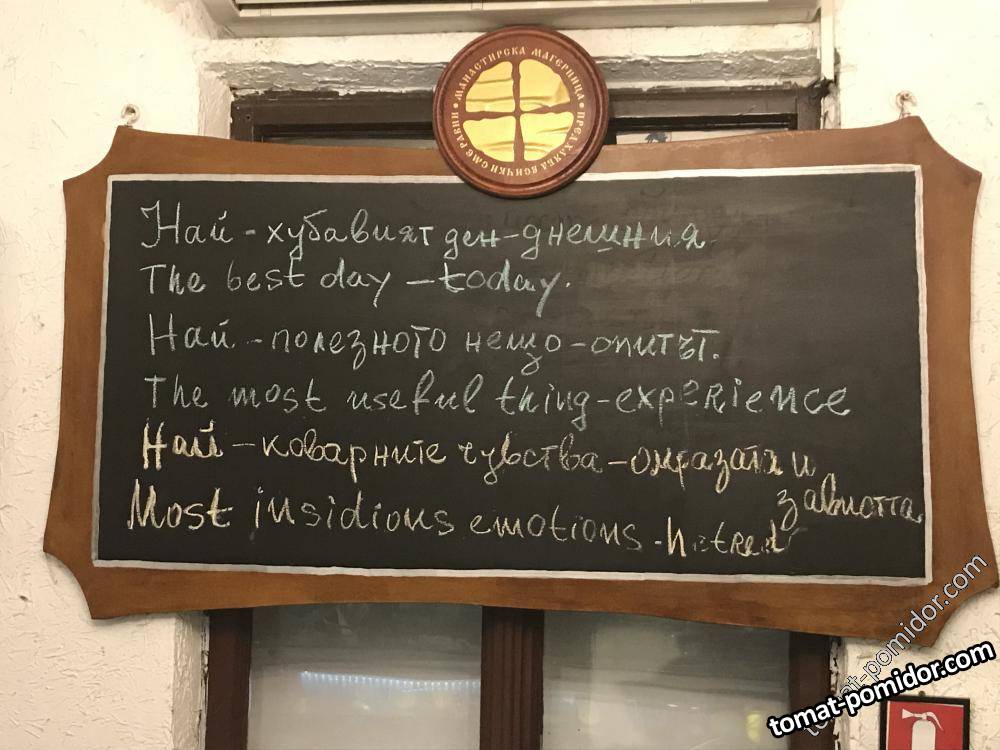 МАНАСТИРСКА МАГЕРНИЦА • ПРЕД ХЛЯБА ВСИЧКИ СМЕ РАВНИ •
Най-хубавият ден-днешния
The best day – today.
Най-полезното нещо-опитът.
The most useful thing-experience
Най-коварните чувства-омразата и
завистта
Most insidious emotions-hatred
tomat-pomidor.com
tomat-pomidor.com